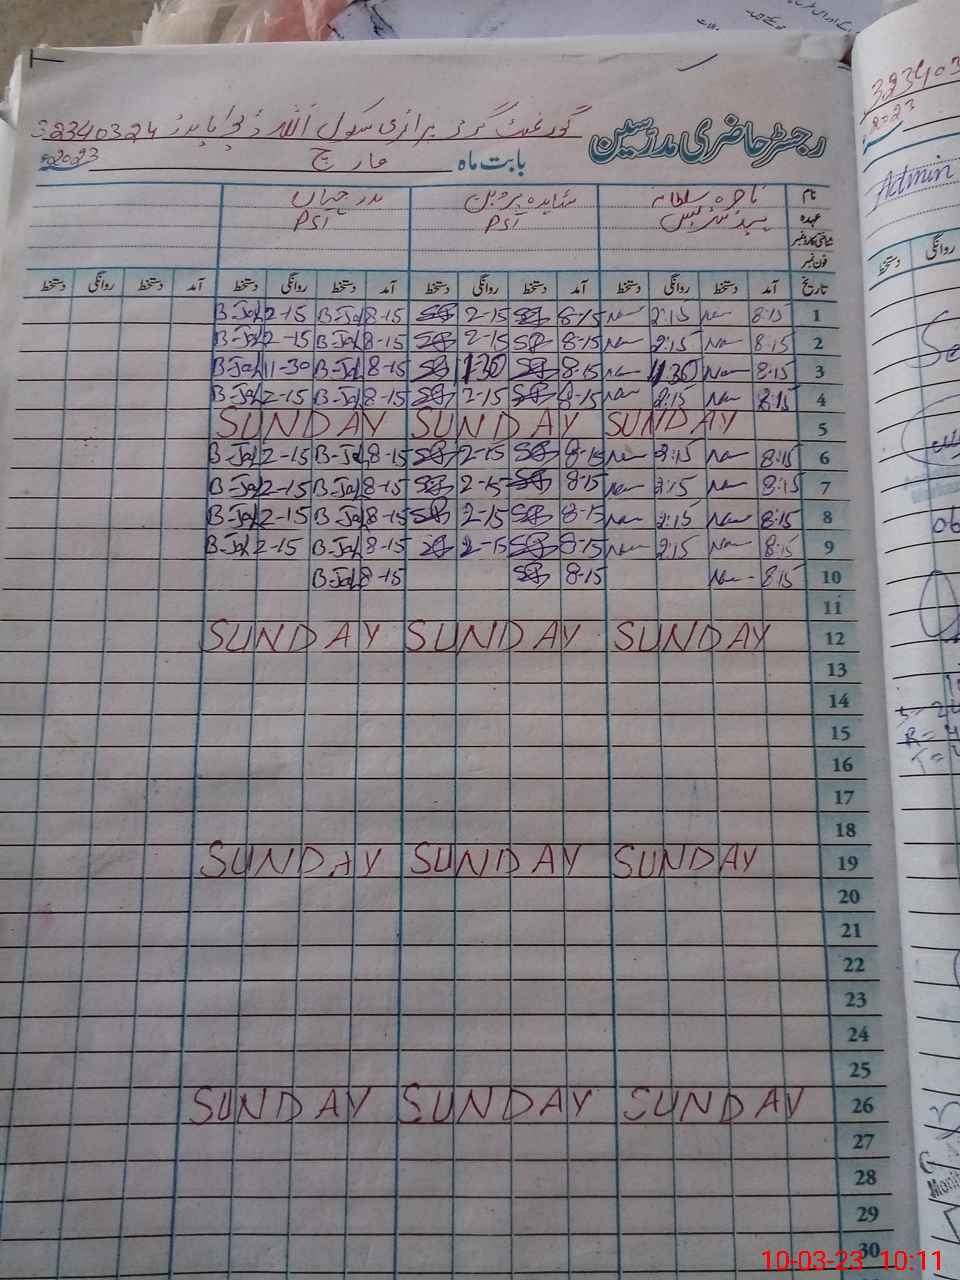 رجسٹر حاضری مدرسین
گورنمنٹ گرلز پرائمری سکول اللہ 32340324
بابت ماہ مارچ 2023ء
نام ناصرہ سلطانہ شاہدہ پروین بدر جہاں
عہدہ ہیڈ مسٹریس PST PST
شناختی کارڈ نمبر
فون نمبر
تاریخ آمد دستخط روانگی دستخط آمد دستخط روانگی دستخط آمد دستخط روانگی دستخط آمد دستخط روانگی دستخط
1 8:15 2:15 8-15 2-15 8-15 B-Jah 2-15 B-Jah
2 8:15 2:15 8-15 2-15 8-15 B-Jah 2-15 B-Jah
3 8:15 11:30 8-15 11:30 8-15 B-Jah 11-30 B-Jah
4 8:15 2:15 8-15 2-15 8-15 B-Jah 2-15 B-Jah
5 SUNDAY SUNDAY SUNDAY
6 8:15 2:15 8-15 2-15 8-15 B-Jah 2-15 B-Jah
7 8:15 2:15 8-15 2-15 8-15 B-Jah 2-15 B-Jah
8 8:15 2:15 8-15 2-15 8-15 B-Jah 2-15 B-Jah
9 8:15 2:15 8-15 2-15 8-15 B-Jah 2-15 B-Jah
10 8:15 8-15 8-15 B-Jah
11
12 SUNDAY SUNDAY SUNDAY
13
14
15
16
17
18
19 SUNDAY SUNDAY SUNDAY
20
21
22
23
24
25
26 SUNDAY SUNDAY SUNDAY
27
28
29
30
323403
2023
Admin
روانگی دستخط
10-03-23 10:11